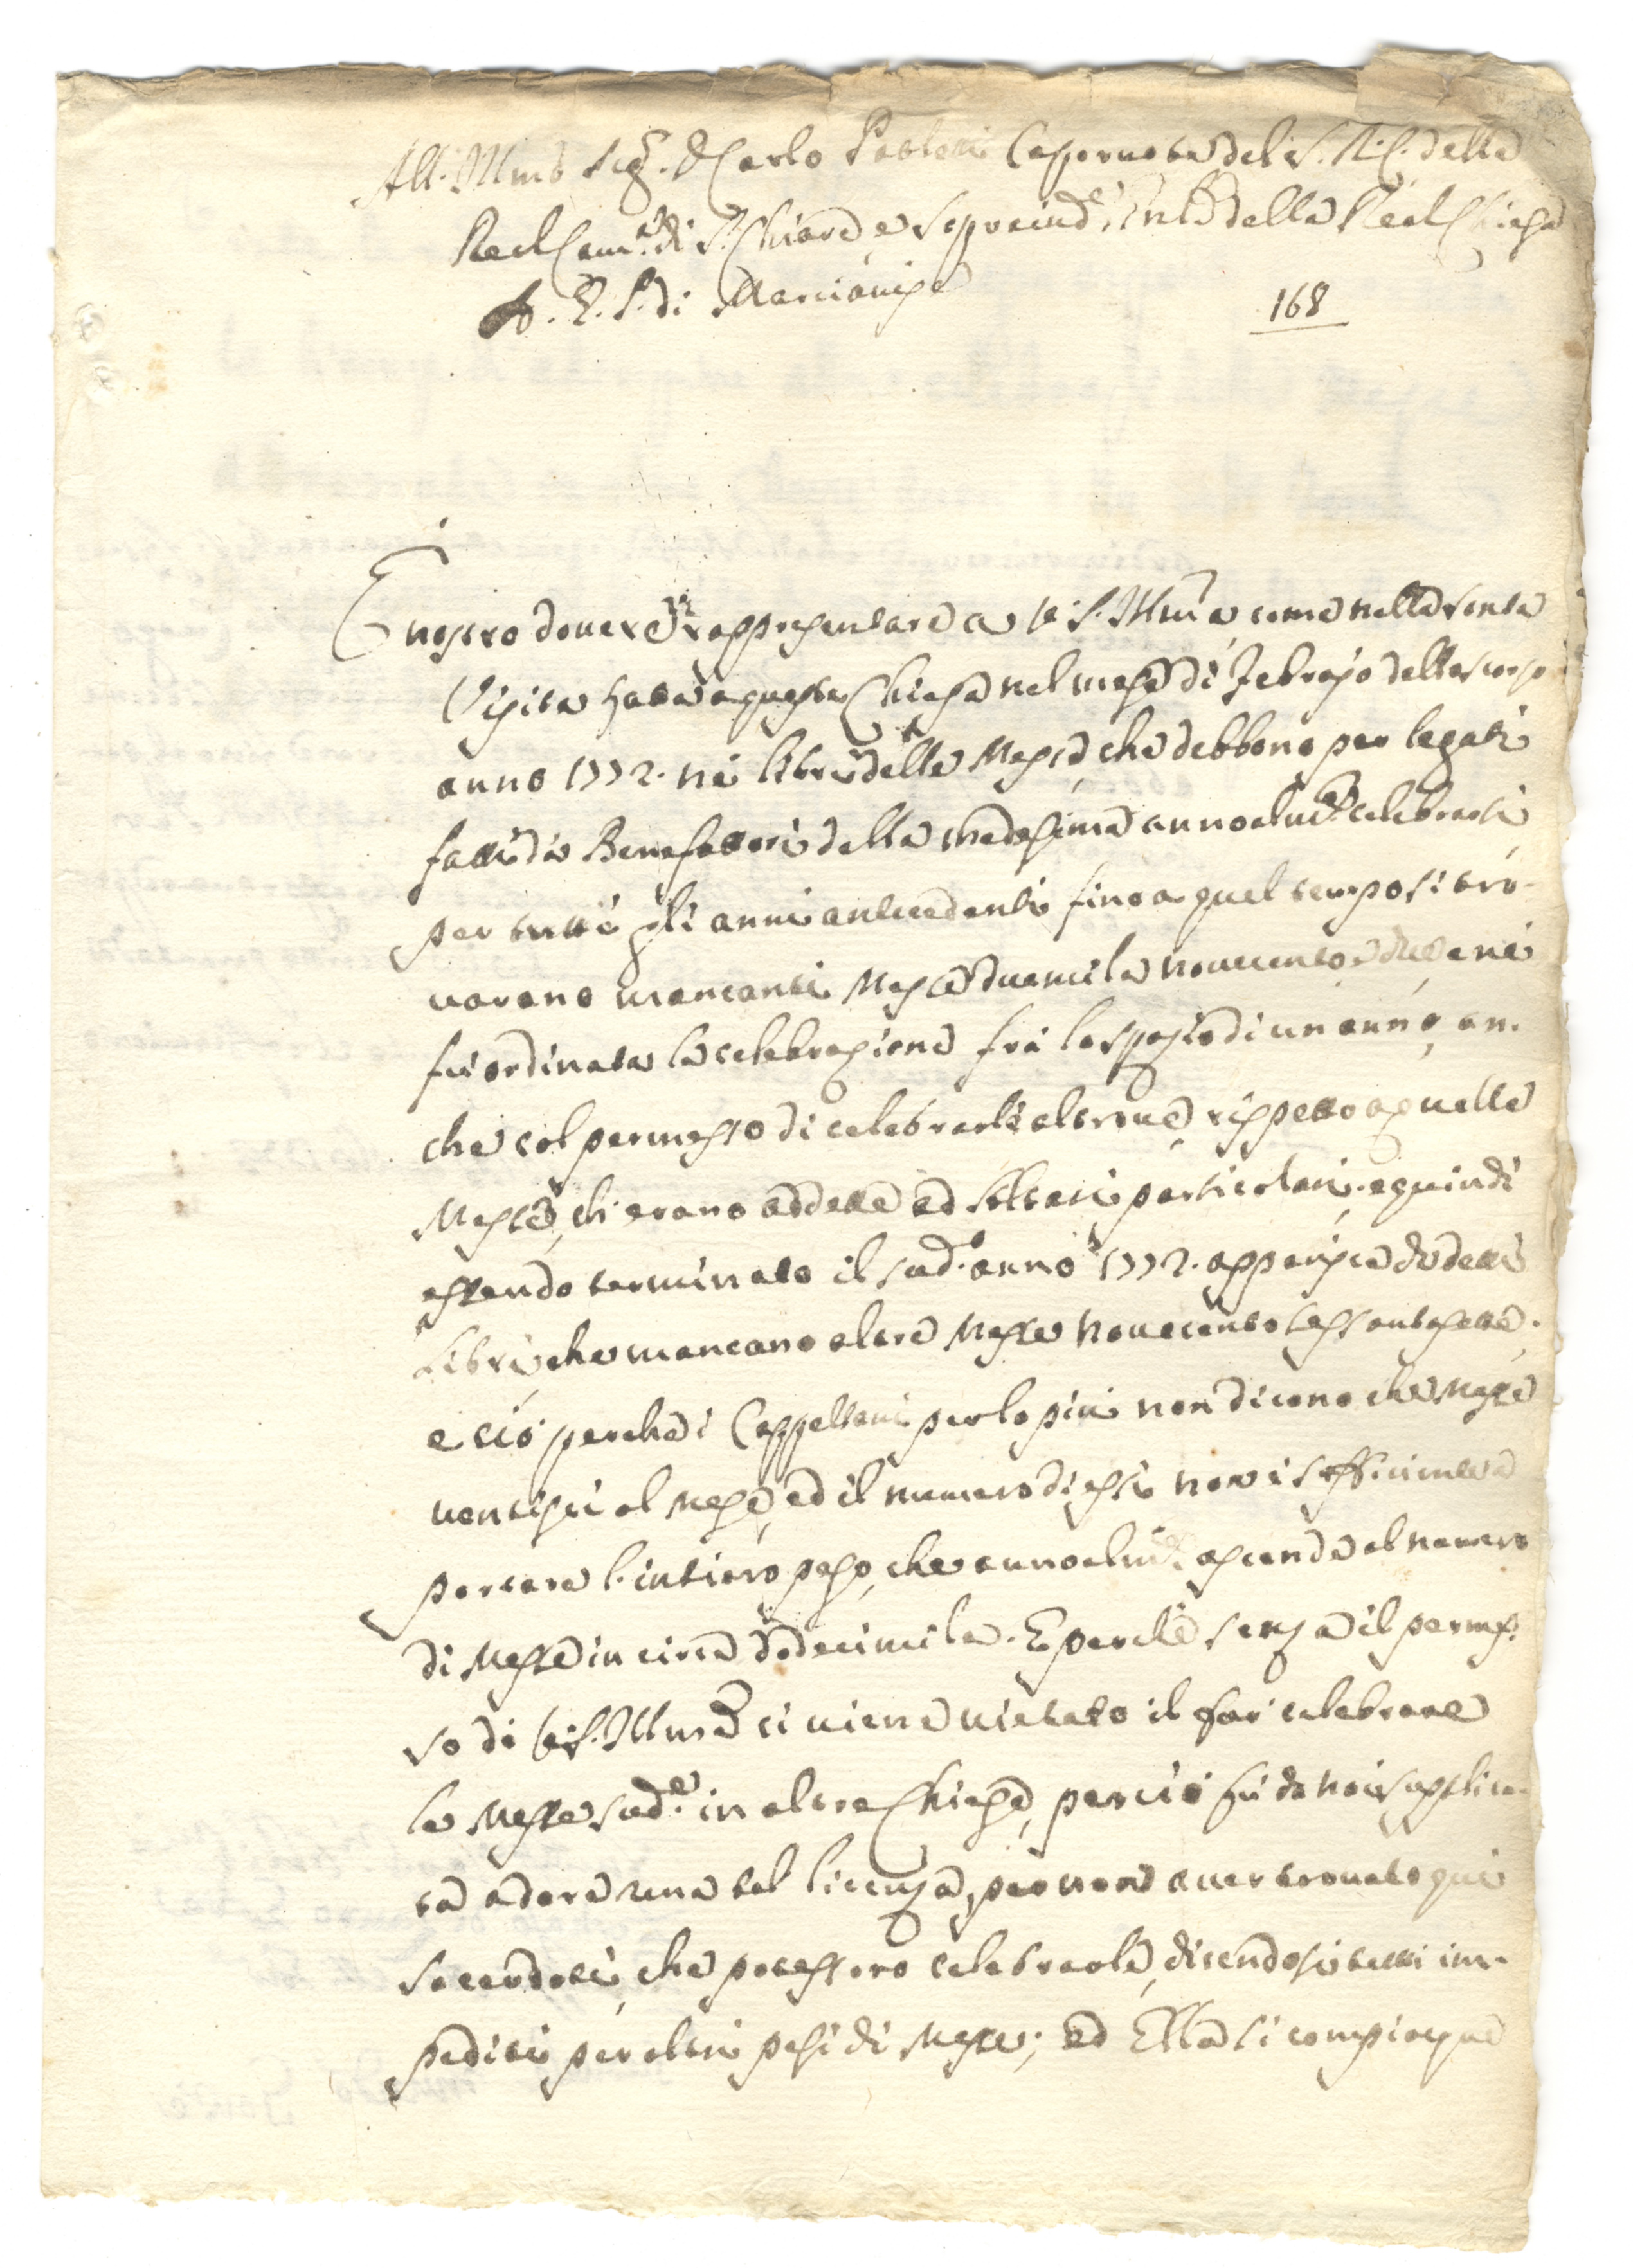 All'Illmo Sig.r D. Carlo Paoletti Caporuota del S.R.C. della
Real Cam.a di S. Chiara, e Sopraind.e della Real Chiesa
A. G. P. di Marcianise
168
È nostro dovere rappresentare a V. S. Illma, come nella Santa
Visita fatta a questa Chiesa nel mese di Febrajo dello scorso
anno 1772. ne' libri delle Messe, che debbono per legati
fatti da Benefattori della medesima annoalm.te celebrarsi
per tutti gli anni antecedenti fino a quel tempo si tro-
varono mancanti Messe duemila novecento e due, e ne
fu ordinata la celebrazione fra lo spazio di un anno, an-
che col permesso di celebrarle altrove, rispetto a quelle
Messe, ch'erano addette ad Altari particolari. e quindi
essendo terminato il sud.o anno 1772. apparisce da detti
Libri, che mancano altre Messe novecento sessantasette.
e ciò perche i Cappellani per lo più non dicono che Messe
ventisei al mese, ed il numero di essi non è sufficiente a
portare l'intiero peso, che annoalm.te ascende al numero
di Messe in circa dodecimila. E perche senza il permes-
so di V. S. Illma ci viene vietato il far celebrare
le Messe sud.e in altra Chiesa, perciò fu da noi supplica-
ta a dare una tal licenza, per non aver trovato qui
Sacerdoti, che potessero celebrarle, dicendosi tutti im-
pediti per altri pesi di Messe; ed Ella si compiacque